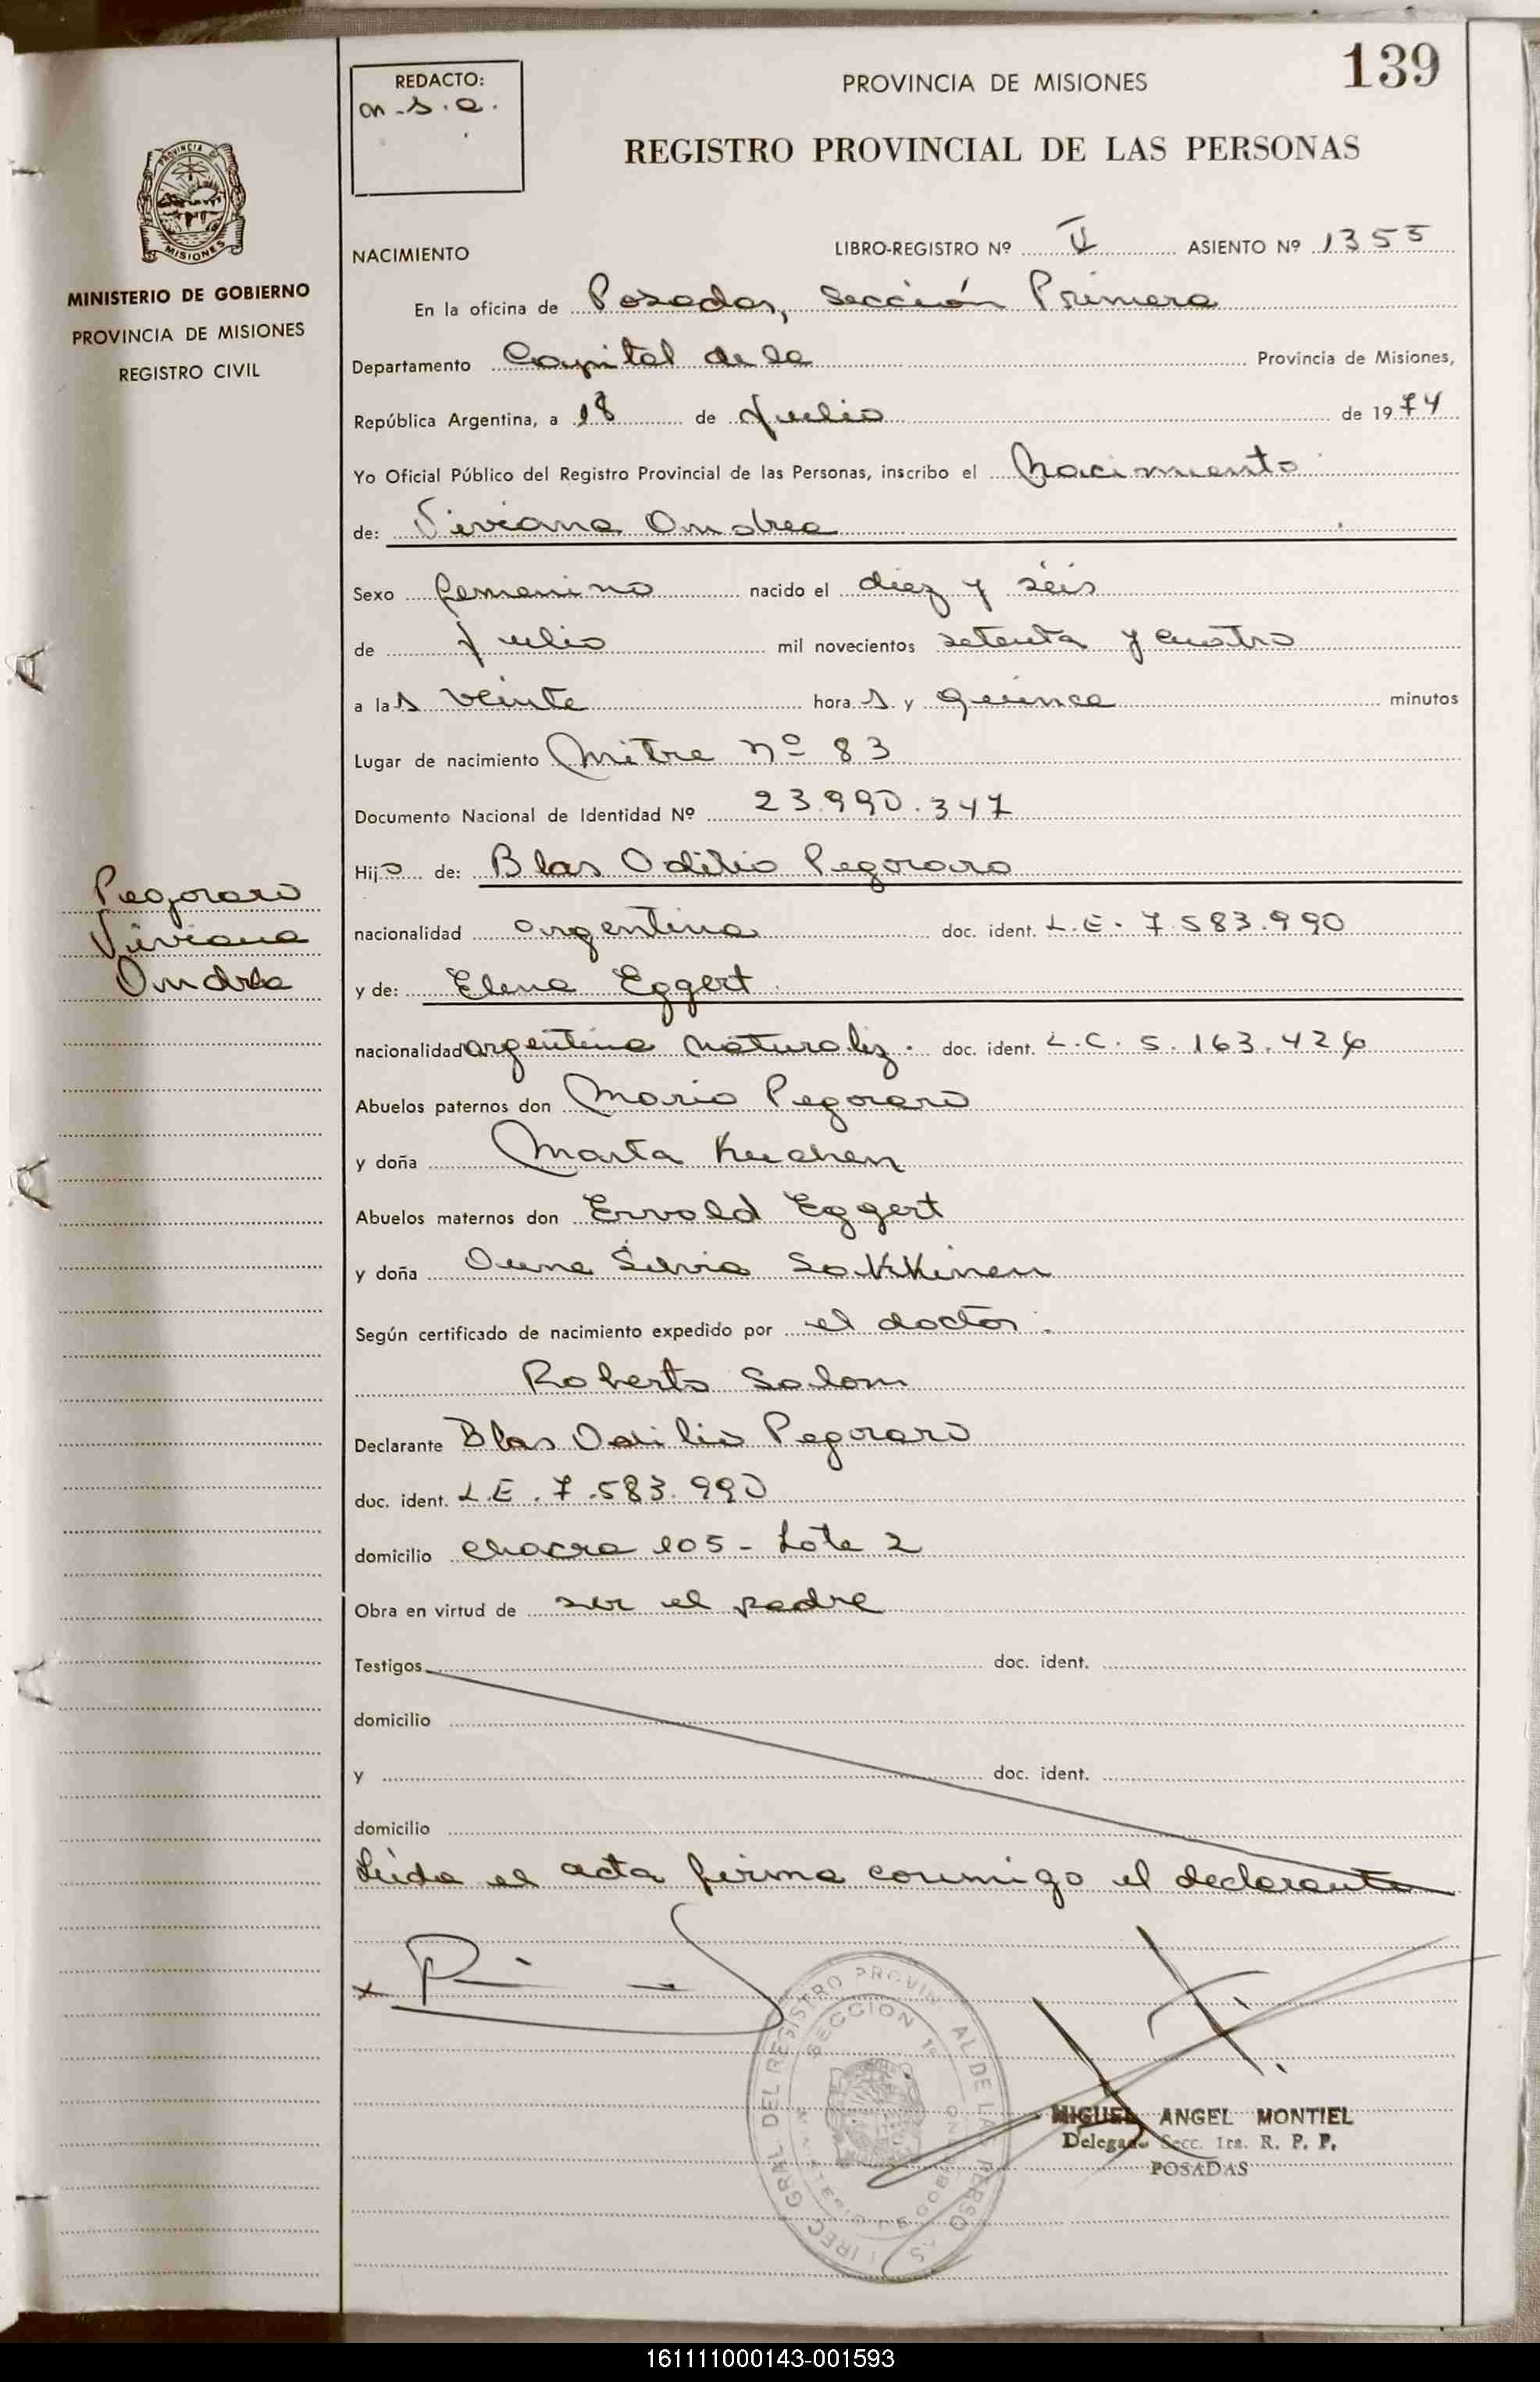 139
REDACTO:
m.s.a.
PROVINCIA DE MISIONES
REGISTRO PROVINCIAL DE LAS PERSONAS
PROVINCIA DE
MISIONES
MINISTERIO DE GOBIERNO
PROVINCIA DE MISIONES
REGISTRO CIVIL
NACIMIENTO LIBRO-REGISTRO Nº II ASIENTO Nº 1355
En la oficina de Posadas, Sección Primera
Departamento Capital de la Provincia de Misiones,
República Argentina, a 18 de Julio de 1974
Yo Oficial Público del Registro Provincial de las Personas, inscribo el Nacimiento
de: Viviana Andrea
Sexo femenino nacido el diez y séis
de julio mil novecientos setenta y cuatro
a las veinte horas y quince minutos
Lugar de nacimiento Mitre nº 83
Documento Nacional de Identidad Nº 23.990.347
Hija de: Blas Odilio Pegoraro
nacionalidad argentina doc. ident. L.E. 7.583.990
y de: Elena Eggert
nacionalidad argentina naturaliz. doc. ident. L.C. 5.163.426
Abuelos paternos don Mario Pegoraro
y doña Marta Kuchen
Abuelos maternos don Ervold Eggert
y doña Silvia Sakkinen
Según certificado de nacimiento expedido por el doctor.
Roberto Salom
Declarante Blas Odilio Pegoraro
doc. ident. L.E. 7.583.990
domicilio chacra 105 - Lote 2
Obra en virtud de ser el padre
Testigos doc. ident.
domicilio
y doc. ident.
domicilio
Leída el acta firma conmigo el declarante
Pegoraro
Viviana
Andrea
x
SECCION 1ª
MIGUEL ANGEL MONTIEL
Delegado Secc. 1ra. R. P. P.
POSADAS
161111000143-001593